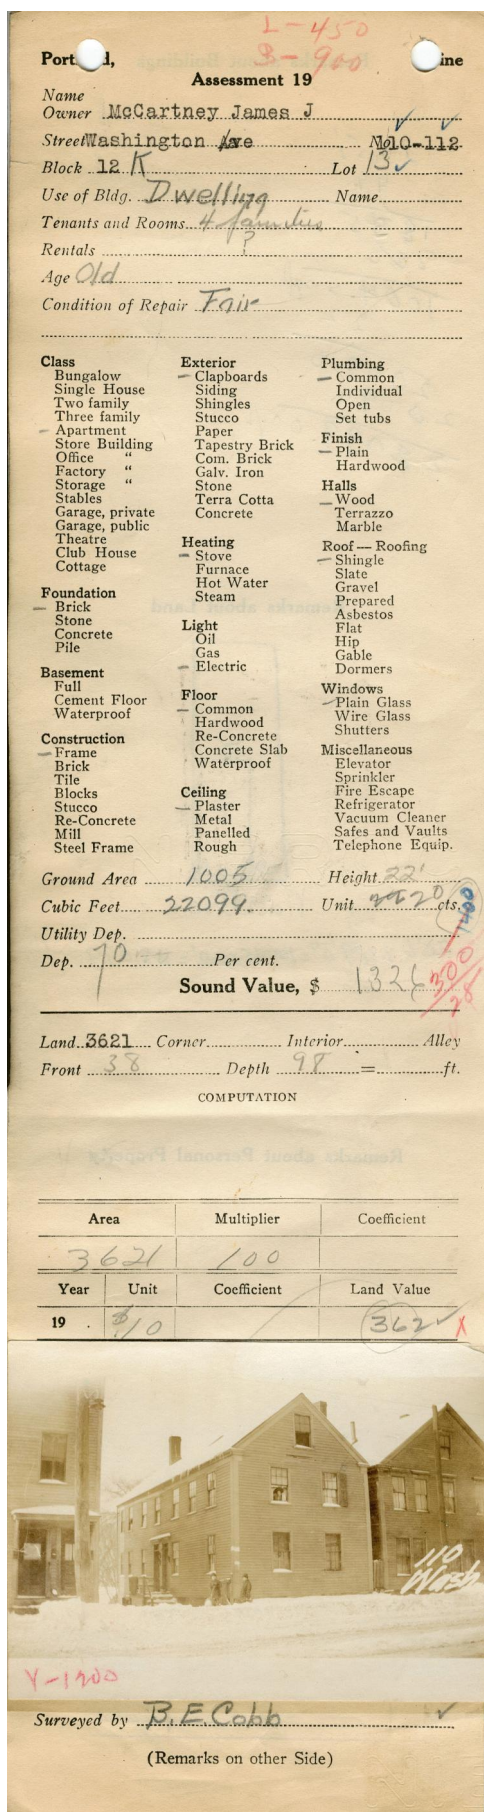 L-450
B-900
Port d, ine
Assessment 19
Name
Owner McCartney James J
Street Washington Ave No 110-112
Block 12 K Lot 13
Use of Bldg. Dwelling Name
Tenants and Rooms 4 families
Rentals ?
Age Old
Condition of Repair Fair
Class
Bungalow
Single House
Two family
Three family
Apartment
Store Building
Office "
Factory "
Storage "
Stables
Garage, private
Garage, public
Theatre
Club House
Cottage
Foundation
Brick
Stone
Concrete
Pile
Basement
Full
Cement Floor
Waterproof
Construction
Frame
Brick
Tile
Blocks
Stucco
Re-Concrete
Mill
Steel Frame
Exterior
Clapboards
Siding
Shingles
Stucco
Paper
Tapestry Brick
Com. Brick
Galv. Iron
Stone
Terra Cotta
Concrete
Heating
Stove
Furnace
Hot Water
Steam
Light
Oil
Gas
Electric
Floor
Common
Hardwood
Re-Concrete
Concrete Slab
Waterproof
Ceiling
Plaster
Metal
Panelled
Rough
Plumbing
Common
Individual
Open
Set tubs
Finish
Plain
Hardwood
Halls
Wood
Terrazzo
Marble
Roof — Roofing
Shingle
Slate
Gravel
Prepared
Asbestos
Flat
Hip
Gable
Dormers
Windows
Plain Glass
Wire Glass
Shutters
Miscellaneous
Elevator
Sprinkler
Fire Escape
Refrigerator
Vacuum Cleaner
Safes and Vaults
Telephone Equip.
Ground Area 1005 Height 22'
Cubic Feet 22099. Unit 20 cts.
1200
Utility Dep.
Dep. 70 Per cent.
Sound Value, $ 1326
300
Land 3621 Corner Interior Alley
Front 38 Depth 98 = ft.
COMPUTATION
Area Multiplier Coefficient
3621 100
Year Unit Coefficient Land Value
19 . $10 362 X
110
Wash
Y-1200
Surveyed by B.E. Cobb
(Remarks on other Side)